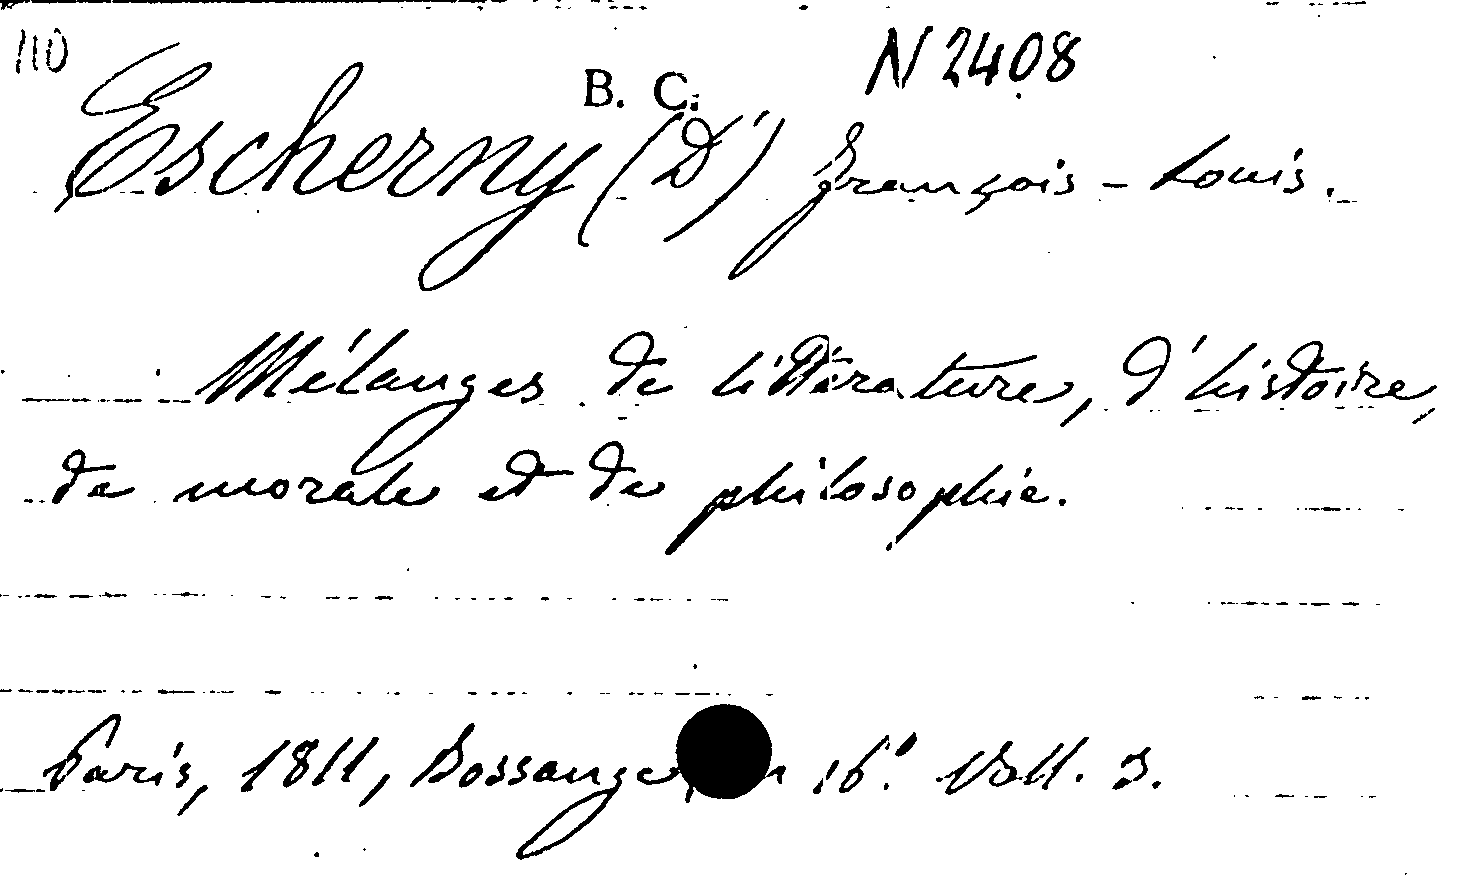 110
B. C.
N 2408
Escherny (D') François-Louis.
Mélanges de littérature, d'histoire,
de morale et de philosophie.
Paris, 1811, Bossange, in 16º. Voll. 3.